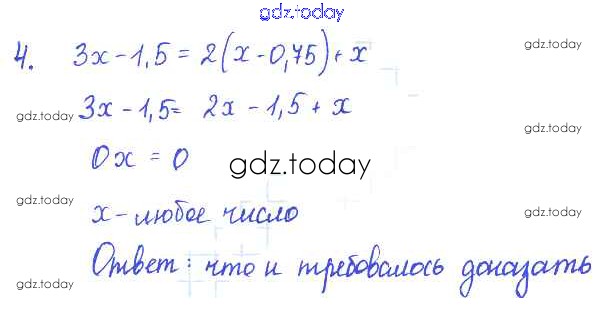 gdz.today
4. 3x - 1,5 = 2(x - 0,75) + x
gdz.today
gdz.today 3x - 1,5 = 2x - 1,5 + x
gdz.today
0x = 0
gdz.today
gdz.today
x - любое число
gdz.today
Ответ: что и требовалось доказать
gdz.today
gdz.today